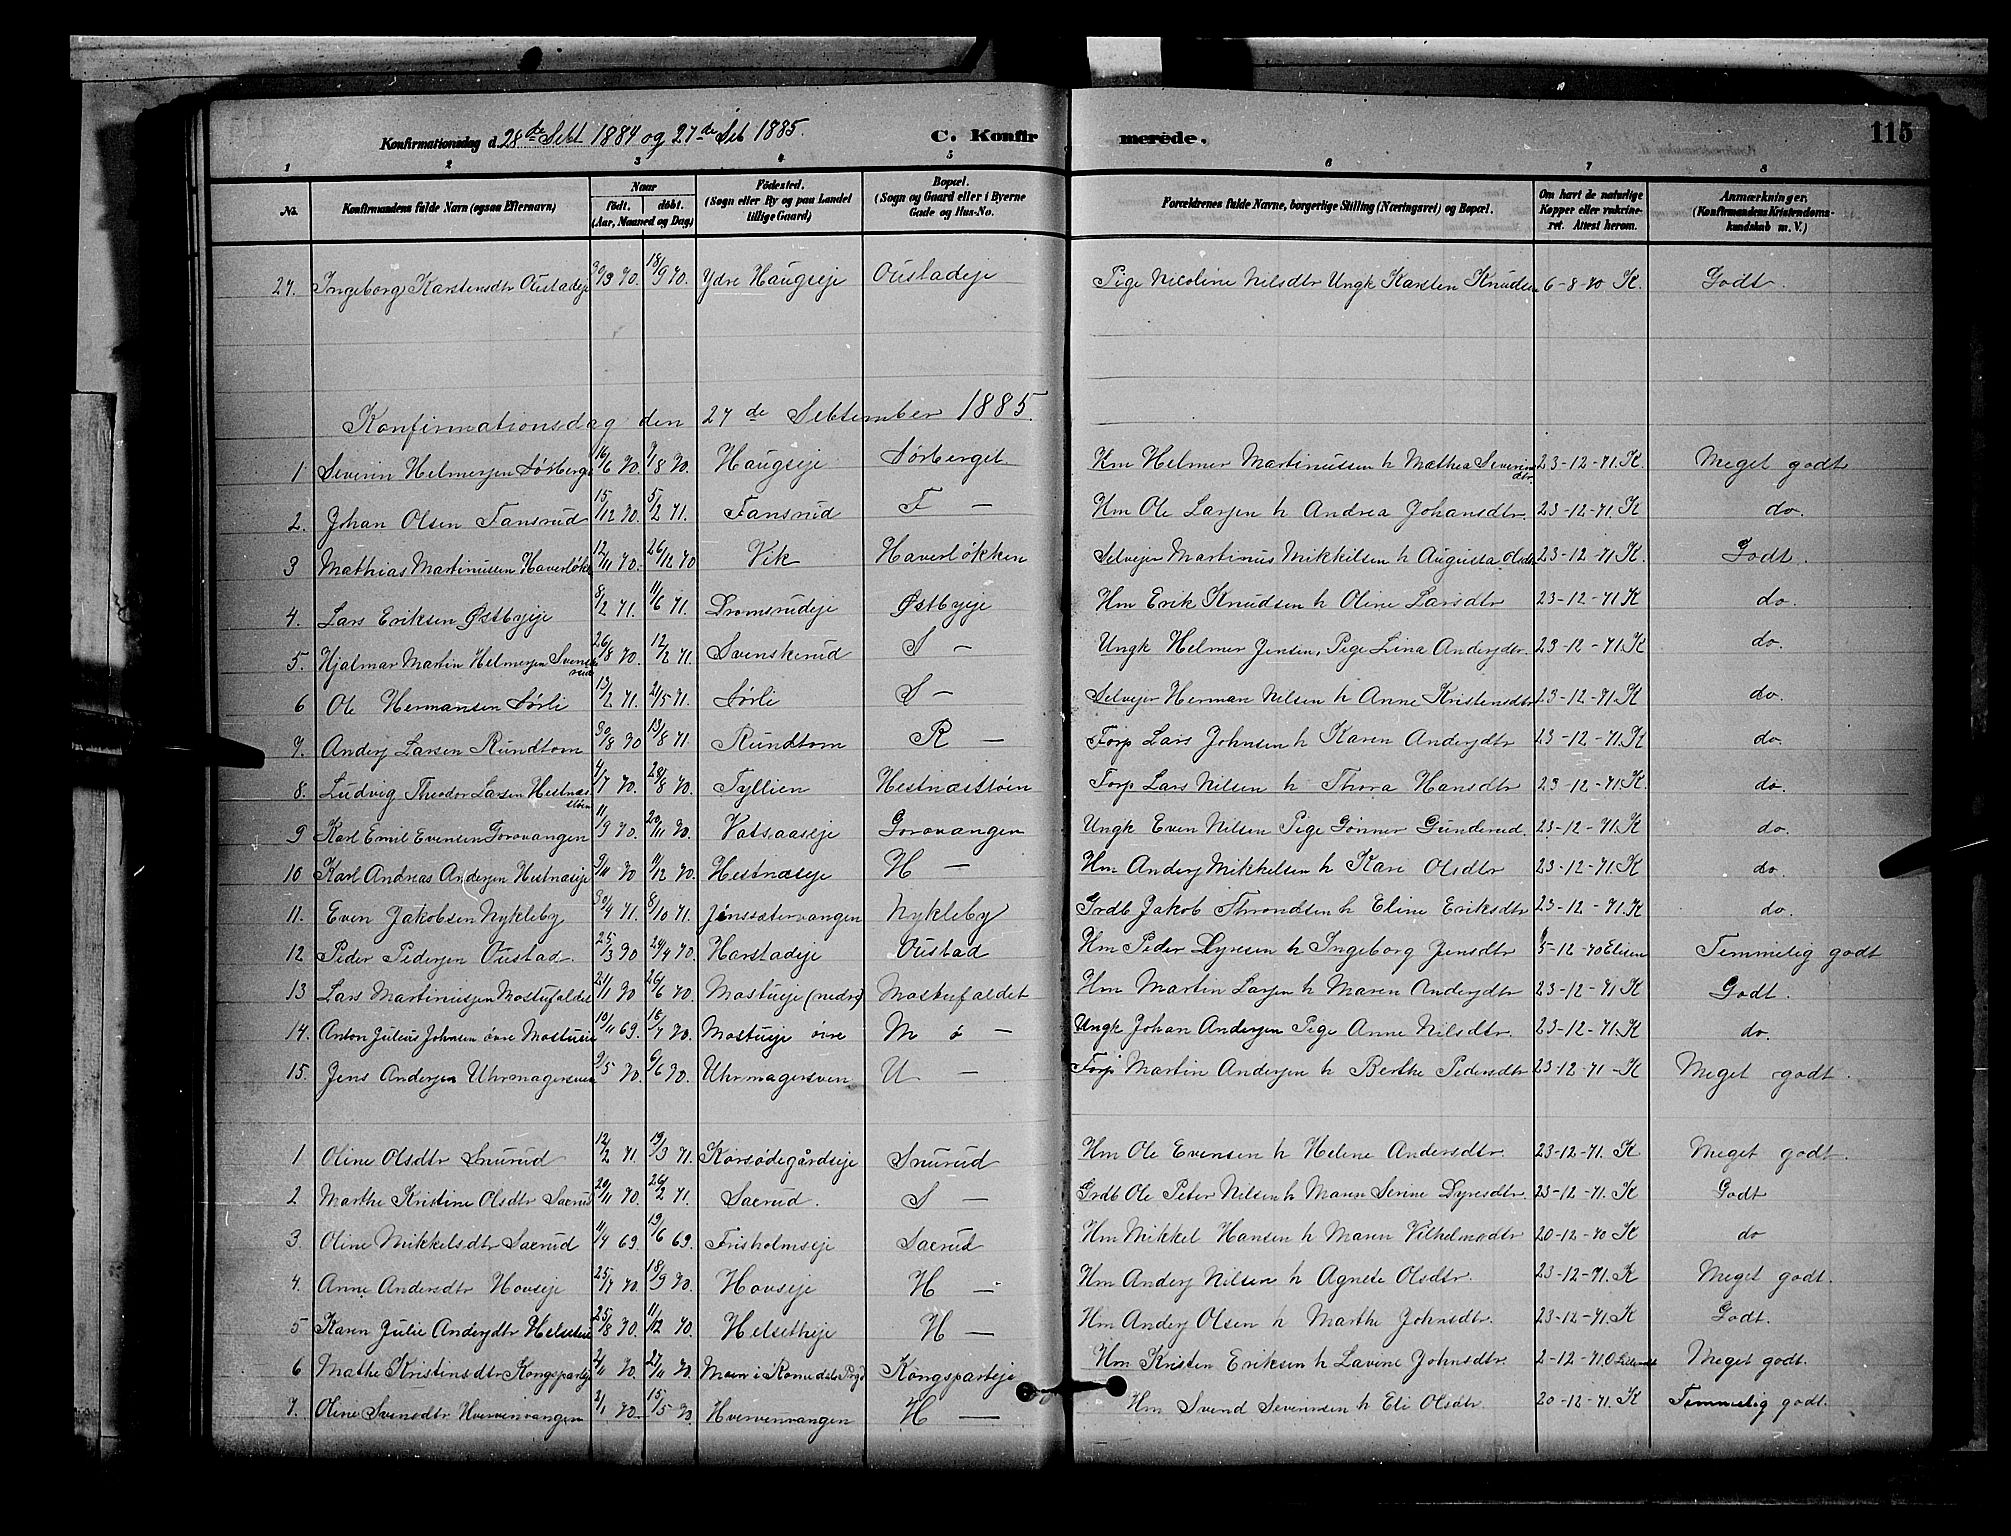 115
Konfirmationsdag d. 28de Sebt 1884 og 27de Seb 1885. C. Konfir merede.
1 2 3 4 5 6 7 8
No. Konfirmandens fulde Navn (ogsaa Efternavn) Naar født. døbt. (Aar, Maaned og Dag) Fødested. (Sogn eller By og paa Landet tillige Gaard) Bopæl. (Sogn og Gaard eller i Byerne Gade og Hus-No. Forældrenes fulde Navne, borgerlige Stilling (Næringsvei) og Bopæl. Om havt de naturlige Kopper eller vakcineret. Attest herom. Anmærkninger. (Konfirmandens Kristendomskundskab m. V.)
27. Ingeborg Karstensdtr Oustadeje 30/3 70. 18/9 70. Ydre Haugseje Oustadeje Pige Nicoline Nilsdtr Ungk Karsten Knudsen 6-8-70 K. Godt.
Konfirmationsdag den 27de Sebtember 1885
1 Severin Helmersen Sørberge 16/6 70. 7/8 70. Haugseje Sørberget Hm Helmer Martinussen h Mathea Severinsdtr 23-12-71. K. Meget godt
2. Johan Olsen Fansrud 15/12 70. 5/2 71. Fansrud F — Hm Ole Larsen h Andrea Johansdtr. 23-12-71. K do.
3 Mathias Martinussen Haverløkk 12/11 70. 26/12 70 Vik Haverløkken Selvejer Martinus Mikkelsen h Augusta Olsdtr 23-12-71 K. Godt.
4. Lars Eriksen Østbyeje 8/2 71. 11/6 71. Dromsrudeje Østbyeje Hm Erik Knudsen h Oline Larsdtr 23-12-71 K do.
5. Hjalmar Martin Helmersen Svenskerud 26/8 70. 12/2 71. Svenskerud S — Ungk Helmer Jensen, Pige Lina Andersdtr. 23-12-71. K do.
6 Ole Hermansen Sørli 13/2 71. 21/5 71. Sørli S — Selvejer Herman Nilsen h Anne Kristensdtr 23-12-71. K do
7. Anders Larsen Rundtom 30/8 70 13/8 71. Rundtom R — Torp Lars Johnsen h Karen Andersdtr 23-12-71. K do.
8. Ludvig Theodor Larsen Hestnæsstøen 4/7 70. 28/8 70. Tyllien Hestnæsstøen Torp Lars Nilsen h Thora Hansdtr 23-12-71 K. do.
9 Karl Emil Evensen Gorovangen 11/9 70. 20/11 70. Vatsaaseje Gorovangen Ungk Even Nilsen Pige Gønner Gunderud 23-12-71. K do.
10 Karl Andreas Andersen Hestnæseje 9/11 70 11/12 70. Hestnæseje H — Hm Anders Mikkelsen h Kari Olsdtr 23-12-71. K do.
11. Even Jakobsen Nykleby 30/4 71. 8/10 71. Jønsætervangen Nykleby Grdb Jakob Throndsen h Eline Eriksdtr 23-12-71. K do.
12 Peder Pedersen Oustad. 25/3 70 24/4 70. Harstadeje Oustad Hm Peder Dyresen h Ingeborg Jensdtr 5-12-70 Elisen Temmelig godt
13 Lars Martinussen Mostufaldet 21/1 70 26/6 70. Mostueje (nedre) Mostufaldet Hm Martin Larsen h Maren Andersdtr 23-12-71 K Godt.
14. Anton Julius Johnsen øvre Mostueie 10/11 69. 18/4 70. Mostueje øvre M ø — Ungk Johan Andersen Pige Anne Nilsdtr. 23-12-71. K do.
15. Jens Andersen Uhrmagersven 9/5 70. 6/6 70. Uhrmagersven U — Torp Martin Andersen h Berthe Pedersdtr 23-12-71 - K Meget godt.
1 Oline Olsdtr Snurud 12/2 71. 19/3 71. Korsødegårdseje Snurud Hm Ole Evensen h Helene Andersdtr. 23-12-71. K Meget godt.
2 Marthe Kristine Olsdtr Saerud 20/11 70. 26/2 71. Saerud. S — Grdb Ole Peter Nilsen h Maren Serine Dyresdtr 23-12-71. K Godt
3. Oline Mikkelsdtr Saerud 11/4 69. 19/6 69. Frisholmseje Saerud Hm Mikkel Hansen h Maren Vilhelmsdtr 20-12-70 K do
4. Anne Andersdtr Hovseje 25/7 70. 18/9 70. Hovseje H — Hm Anders Nilsen h Agnete Olsdtr. 23-12-71. K Meget godt.
5 Karen Julie Andersdtr Helseteie 25/8 70. 11/12 70. Helsetheje H — Hm Anders Olsen h Marthe Johnsdtr. 23-12-71. K Godt.
6 Mathe Kristinsdtr Kongspartej 2/11 70. 27/11 70. Moen i Romedals Prgd Kongsparteje Hm Kristen Eriksen h Lavine Johnsdtr. 2-12-71. Meget godt.
7. Oline Svensdtr Hvervenvangen 2/1 70. 15/5 70. Hvervenvangen H — Hm Svend Severinsen h Eli Olsdtr. 20-12-71. K Temmelig godt.